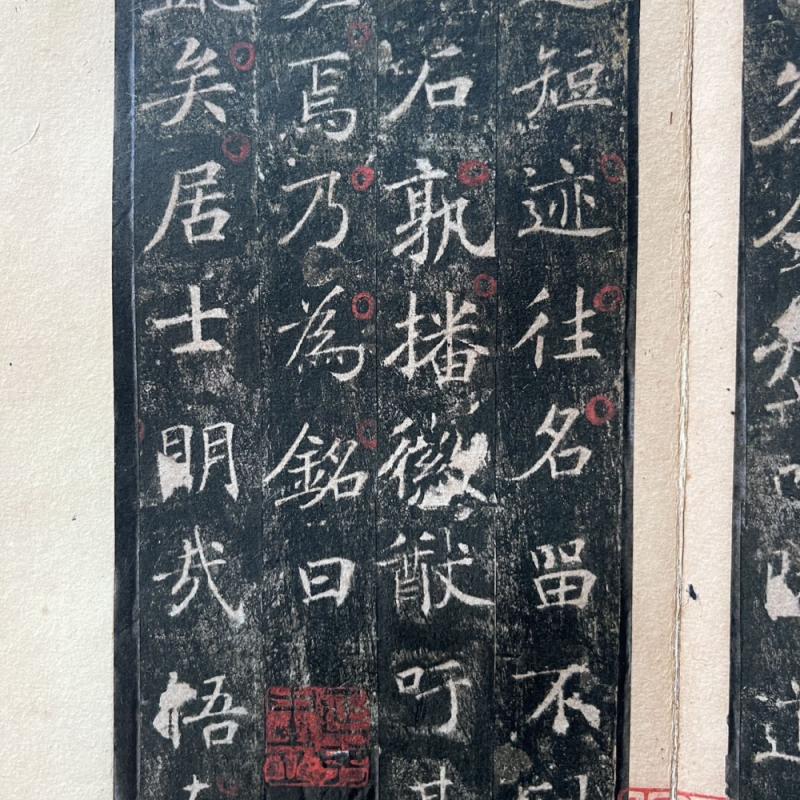 短迹往名留不
石孰播徽猷吁
焉乃為銘曰
矣居士明哉悟